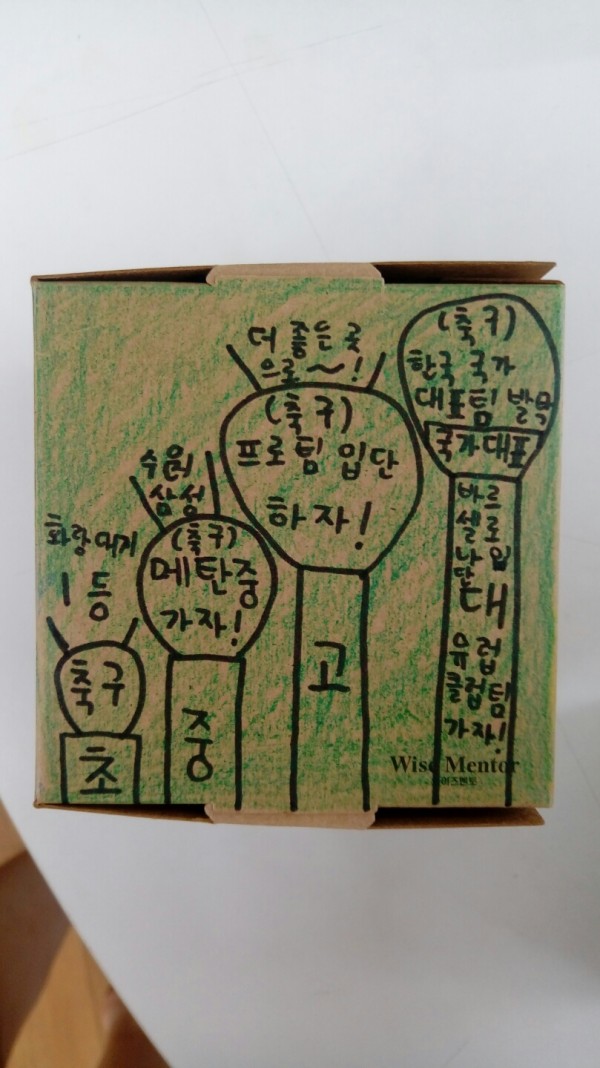 화랑대기
1등
축구
초
수원
삼성
(축구)
메탄중
가자!
중
더 좋은 곳
으로~!
(축구)
프로팀 입단
하자!
고
(축구)
한국 국가
대표팀 발탁
국가대표
바르
셀로
나 입
단
대
유럽
클럽팀
가자!
Wise Mentor
와이즈멘토